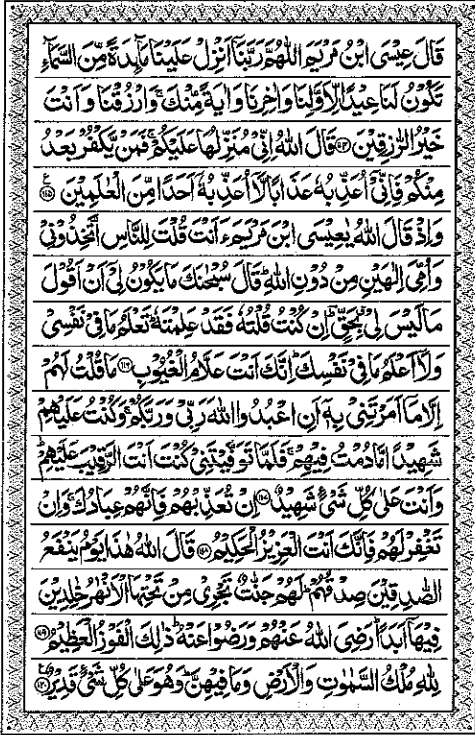 قَالَ عِيْسَى ابْنُ مَرْيَمَ اللّٰهُمَّ رَبَّنَاۤ اَنْزِلْ عَلَيْنَا مَآىِٕدَةً مِّنَ السَّمَآءِ
تَكُوْنُ لَنَا عِيْدًا لِّاَوَّلِنَا وَاٰخِرِنَا وَاٰيَةً مِّنْكَ ۚ وَارْزُقْنَا وَاَنْتَ
خَيْرُ الرّٰزِقِيْنَ ۝۱۱۴ قَالَ اللّٰهُ اِنِّيْ مُنَزِّلُهَا عَلَيْكُمْ ۚ فَمَنْ يَّكْفُرْ بَعْدُ
مِنْكُمْ فَاِنِّيْۤ اُعَذِّبُهٗ عَذَابًا لَّاۤ اُعَذِّبُهٗۤ اَحَدًا مِّنَ الْعٰلَمِيْنَ ۝۱۱۵
وَاِذْ قَالَ اللّٰهُ يٰعِيْسَى ابْنَ مَرْيَمَ ءَاَنْتَ قُلْتَ لِلنَّاسِ اتَّخِذُوْنِيْ
وَاُمِّيَ اِلٰهَيْنِ مِنْ دُوْنِ اللّٰهِ ۚ قَالَ سُبْحٰنَكَ مَا يَكُوْنُ لِيْۤ اَنْ اَقُوْلَ
مَا لَيْسَ لِيْ بِحَقٍّ ۚ اِنْ كُنْتُ قُلْتُهٗ فَقَدْ عَلِمْتَهٗ ۚ تَعْلَمُ مَا فِيْ نَفْسِيْ
وَلَاۤ اَعْلَمُ مَا فِيْ نَفْسِكَ ۚ اِنَّكَ اَنْتَ عَلَّامُ الْغُيُوْبِ ۝۱۱۶ مَا قُلْتُ لَهُمْ
اِلَّا مَاۤ اَمَرْتَنِيْ بِهٖۤ اَنِ اعْبُدُوا اللّٰهَ رَبِّيْ وَرَبَّكُمْ ۚ وَكُنْتُ عَلَيْهِمْ
شَهِيْدًا مَّا دُمْتُ فِيْهِمْ ۚ فَلَمَّا تَوَفَّيْتَنِيْ كُنْتَ اَنْتَ الرَّقِيْبَ عَلَيْهِمْ ۚ
وَاَنْتَ عَلٰى كُلِّ شَيْءٍ شَهِيْدٌ ۝۱۱۷ اِنْ تُعَذِّبْهُمْ فَاِنَّهُمْ عِبَادُكَ ۚ وَاِنْ
تَغْفِرْ لَهُمْ فَاِنَّكَ اَنْتَ الْعَزِيْزُ الْحَكِيْمُ ۝۱۱۸ قَالَ اللّٰهُ هٰذَا يَوْمُ يَنْفَعُ
الصّٰدِقِيْنَ صِدْقُهُمْ ۚ لَهُمْ جَنّٰتٌ تَجْرِيْ مِنْ تَحْتِهَا الْاَنْهٰرُ خٰلِدِيْنَ
فِيْهَاۤ اَبَدًا ۚ رَضِيَ اللّٰهُ عَنْهُمْ وَرَضُوْا عَنْهُ ۚ ذٰلِكَ الْفَوْزُ الْعَظِيْمُ ۝۱۱۹
لِلّٰهِ مُلْكُ السَّمٰوٰتِ وَالْاَرْضِ وَمَا فِيْهِنَّ ۚ وَهُوَ عَلٰى كُلِّ شَيْءٍ قَدِيْرٌ ۝۱۲۰